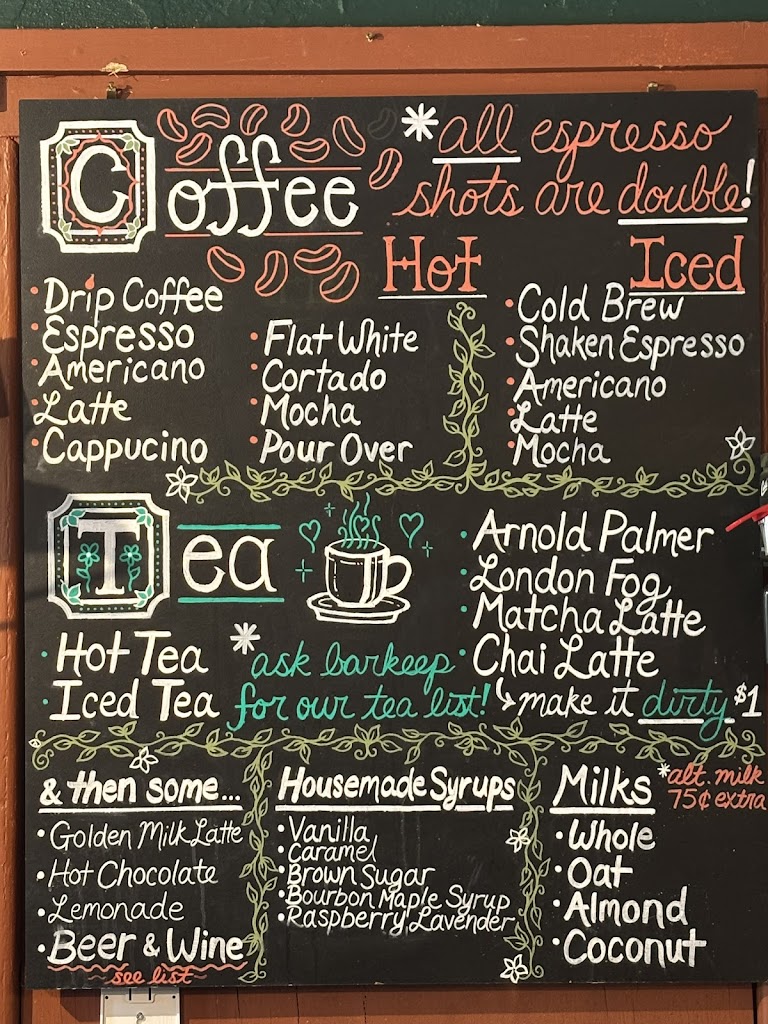 Coffee
*all espresso
shots are double!
Hot
Drip Coffee
Espresso
Americano
Latte
Cappucino
Flat White
Cortado
Mocha
Pour Over
Iced
Cold Brew
Shaken Espresso
Americano
Latte
Mocha
Tea
Hot Tea
Iced Tea
*ask barkeep
for our tea list!
Arnold Palmer
London Fog
Matcha Latte
Chai Latte
make it dirty $1
& then some...
Golden Milk Latte
Hot Chocolate
Lemonade
Beer & Wine
see list
Housemade Syrups
Vanilla
Caramel
Brown Sugar
Bourbon Maple Syrup
Raspberry Lavender
Milks
*alt. milk
75¢ extra
Whole
Oat
Almond
Coconut